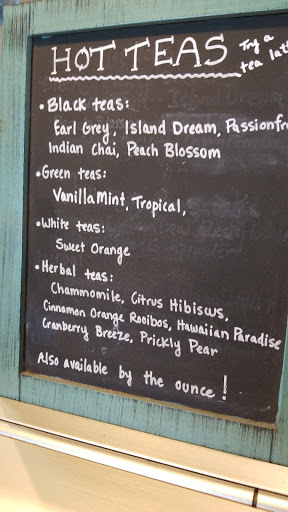 HOT TEAS
Try a
tea latt
• Black teas:
Earl Grey, Island Dream, Passionfr
Indian Chai, Peach Blossom
• Green teas:
Vanilla Mint, Tropical,
• White teas:
Sweet Orange
• Herbal teas:
Chammomile, Citrus Hibiscus,
Cinnamon Orange Rooibos, Hawaiian Paradise
Cranberry Breeze, Prickly Pear
Also available by the ounce!